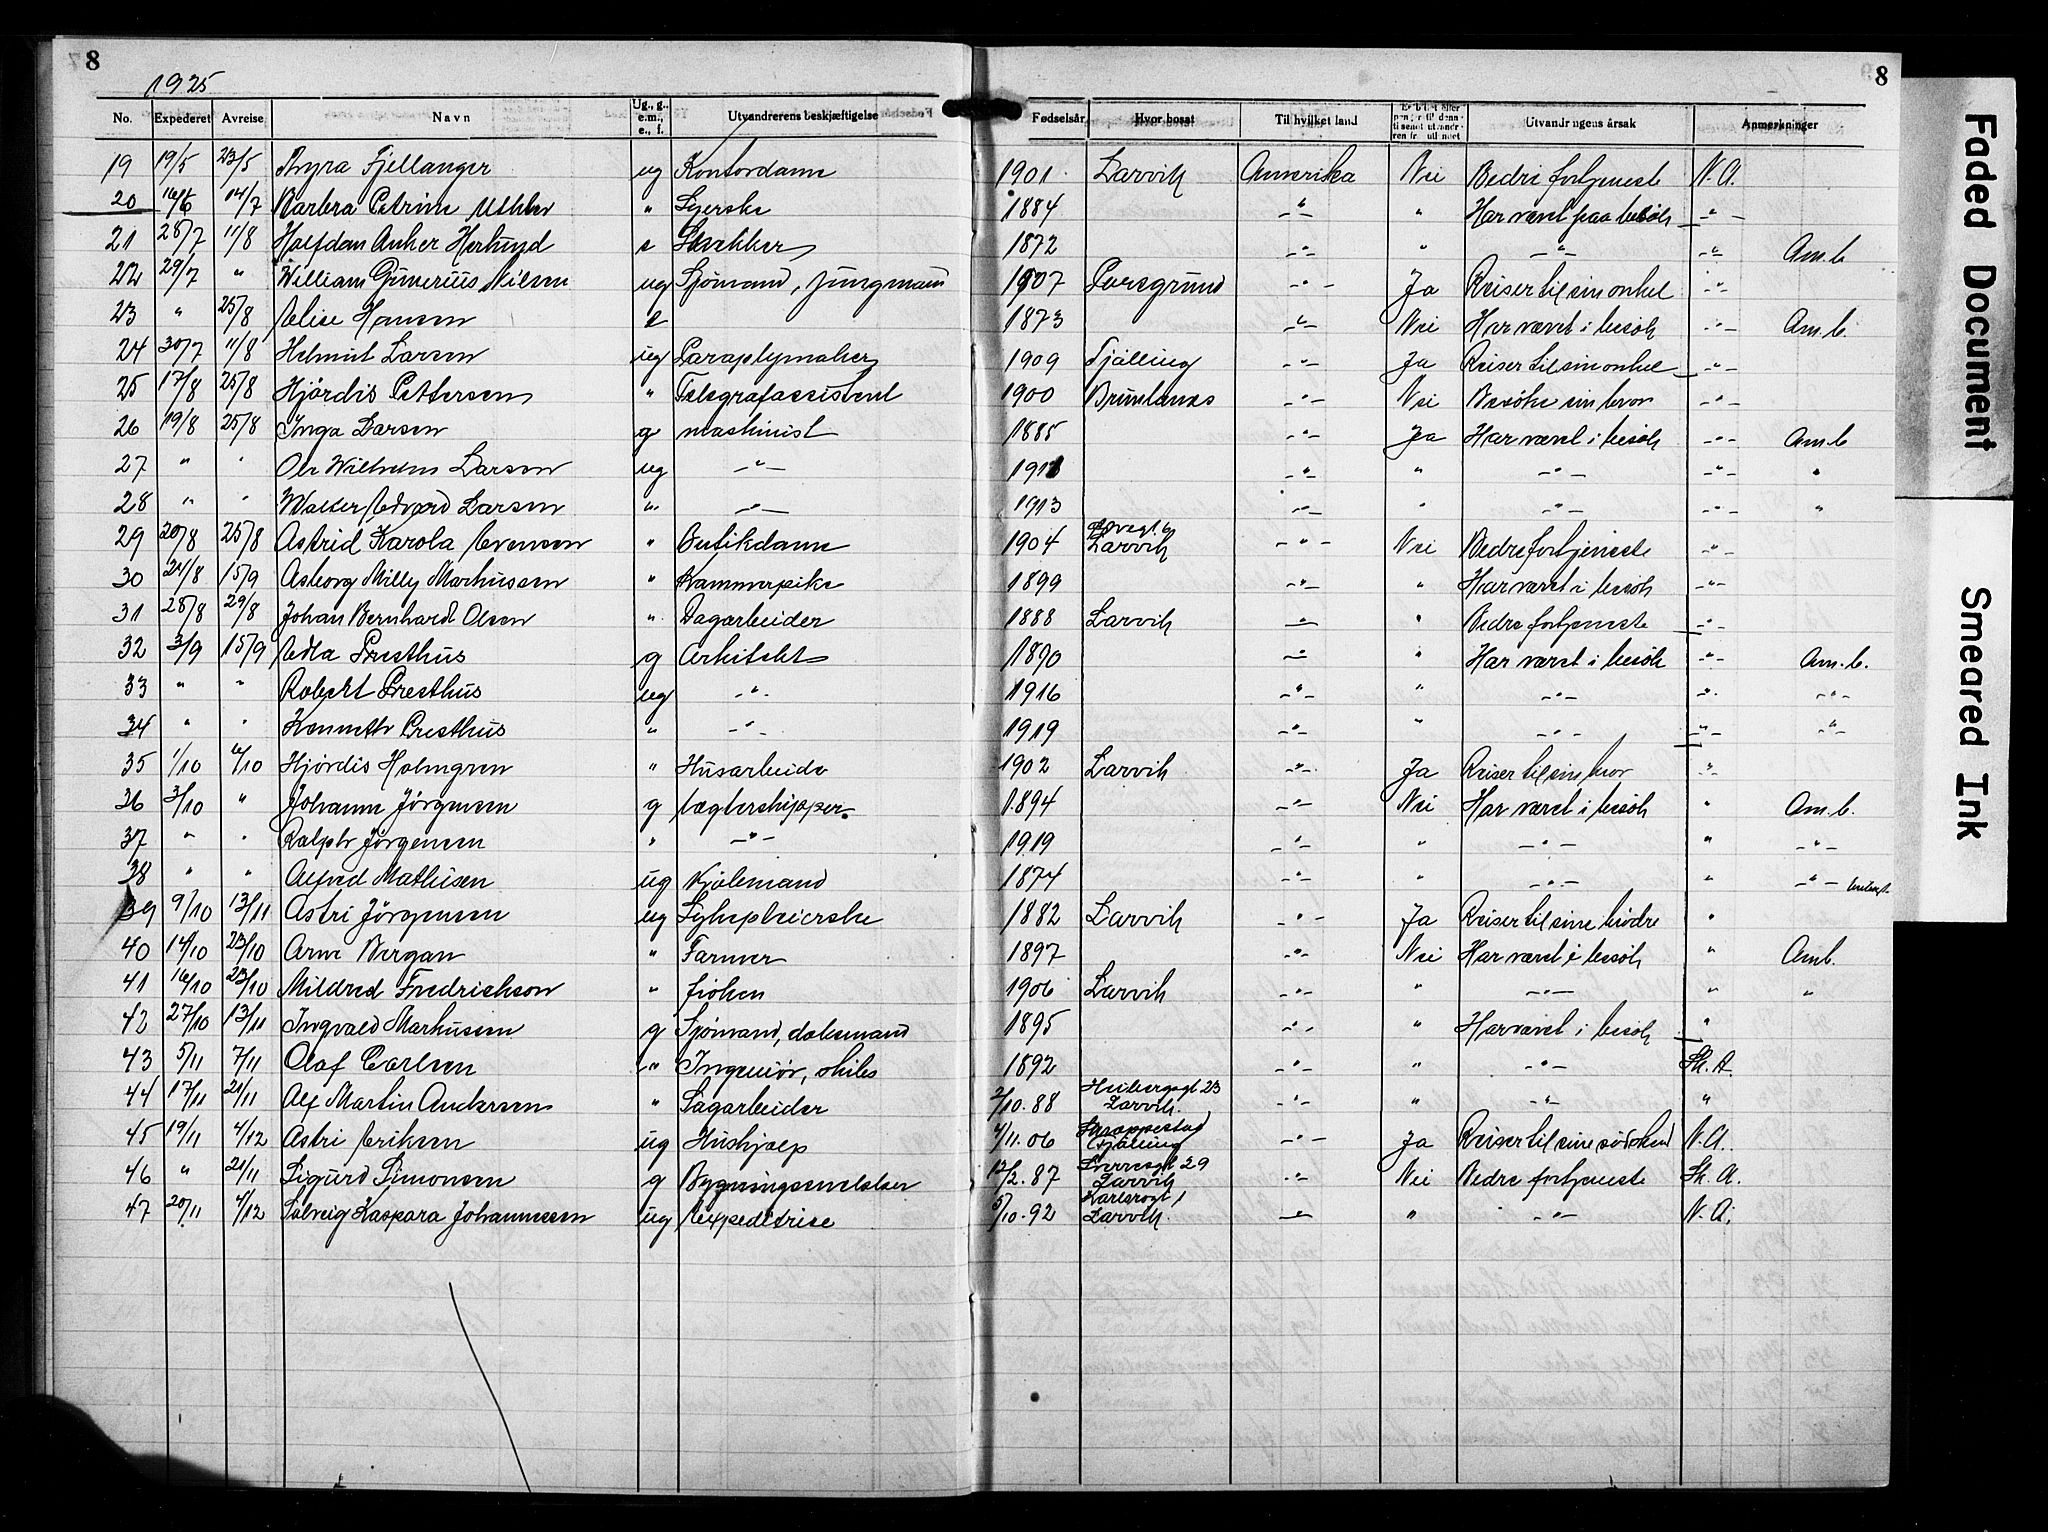 8
8
1925
No. Expederet Avreise Navn Ug., g., e.m., e., f. Utvandrerens beskjæftigelse Fødselsår Hvor bosat Til hvilket land Utvandringens årsak Anmerkninger
19 19/5 23/5 Fjellanger ug Kontordame 1901 Larvik Amerika Nei Bedre fortjeneste N.A.
20 16/6 14/7 Barbra Petrine ug " Syerske 1884 -"- " Har været paa besøk -"-
21 28/7 11/8 Halfdan Anker Herlund e Snekker 1872 -"- " -"- -"- Am.b
22 29/7 " William Gunerius Nilsen ug Sjømand, jungmand 1907 Porsgrund -"- Ja Reiser til sin onkel -"-
23 " 25/8 Elise Hansen e 1873 -"- Nei Har været i besøk -"- Am.b.
24 30/7 11/8 Helmut Larsen ug Paraplymaker 1909 Tjölling -"- Ja Reiser til sin onkel -"-
25 17/8 25/8 Hjördis Pettersen " Telegrafassistent 1900 Brunlanes -"- Nei Besöke sin bror -"-
26 19/8 25/8 Inga Larsen g maskinist 1885 -"- Ja Har været i besøk -"- Am.b
27 " " Ole Wilhelm Larsen ug -"- 1911 -"- " -"- -"- "
28 " " Walter Edvard Larsen " -"- 1913 -"- " -"- -"- "
29 20/8 25/8 Astrid Karola Evensen " Butikdame 1904 Larvik -"- Nei Bedre fortjeneste -"-
30 24/8 15/9 Asborg Milly Markussen " Kammerpike 1899 -"- " Har været i besøk -"-
31 28/8 29/8 Johan Bernhard Olsen " Dagarbeider 1888 Larvik -"- " Bedre fortjeneste -"-
32 3/9 15/9 Edla Presthus g Arkitekt 1890 -"- " Har været i besøk -"- Am.b.
33 " " Robert Presthus ug -"- 1916 -"- " -"- -"- -"-
34 " " Kenneth Presthus " -"- 1919 -"- " -"- -"- -"-
35 1/10 6/10 Hjördis Holmgren " Husarbeide 1902 Larvik -"- Ja Reiser til sin bror -"-
36 3/10 " Johanne Jörgensen g lægterskipper 1894 -"- Nei Har været i besøk " Am.b.
37 " " Ralph Jörgensen " -"- 1919 -"- " -"- " -"-
38 " " Alfred Mathisen ug Kjölemand 1874 -"- " -"- " -"-
39 9/10 13/11 Astri Jörgensen ug Sykepleierske 1882 Larvik -"- Ja Reiser til sine brödre "
40 14/10 23/10 Arne Bergan " Farmer 1897 -"- Nei Har været i besök " Amb.
41 16/10 23/10 Mildred Fredrickson " fröken 1906 Larvik -"- " -"- " "
42 27/10 13/11 Ingvald Markussen g Sjømand, deksmand 1895 -"- " Har været i besök "
43 5/11 7/11 Olaf Carlsen " Ingeniör, skibs 1892 -"- " -"- Sk.A.
44 17/11 21/11 Alf Martin Andersen " Sagarbeider 2/10.88 Heibergsgt 23 Larvik. -"- " -"- "
45 19/11 4/12 Astri Eriksen ug Hushjælp 4/11.06 Tjölling -"- Ja Reiser til sine södskend N.A.
46 " 21/11 Sigurd Simonsen g 12/2.87 Sverresgt 29 Larvik -"- Nei Bedre fortjeneste Sk.A.
47 20/11 4/12 Solveig Kaspara Johannessen ug Expeditrise 5/10.92 Karlsrogt 1 Larvik. -"- " -"- N.A.
Faded Document
Smeared Ink